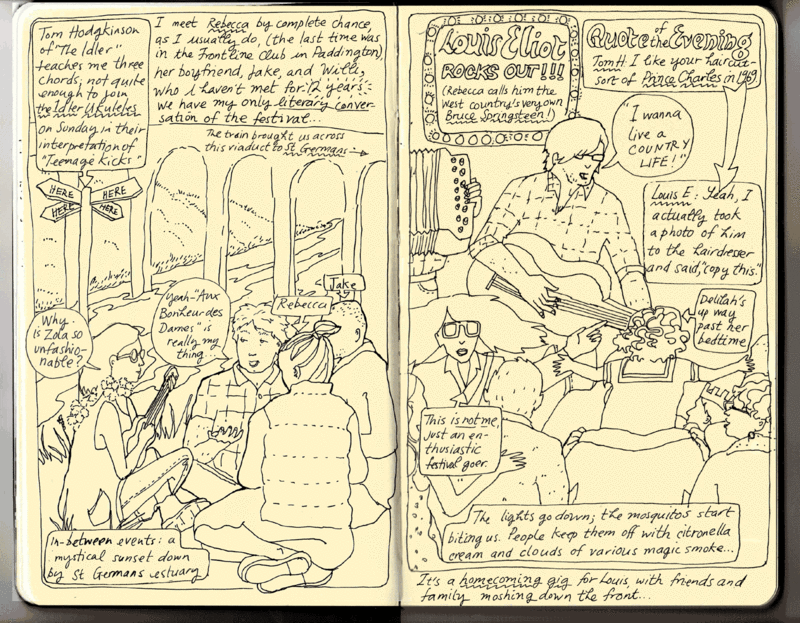 Tom Hodgkinson
of "The Idler"
teaches me three
chords; not quite
enough to join
the Idler Ukuleles
on Sunday in their
interpretation of
"Teenage Kicks"
I meet Rebecca by complete chance,
as I usually do, (the last time was
in the Frontline Club in Paddington),
her boyfriend, Jake, and Will,
who I haven't met for 12 years -
we have my only literary conver-
sation of the festival...
The train brought us across
this viaduct to St Germans
HERE
HERE
HERE
HERE
Jake
Rebecca
Why
is Zola so
unfashio-
nable?
Yeah - "Aux
Bonheur des
Dames" is
really my
thing
In-between events: a
mystical sunset down
by St Germans estuary
Louis Eliot
ROCKS OUT!!!
(Rebecca calls him the
west country's very own
Bruce Springsteen!)
Quote of
the Evening
Tom H: I like your haircut-
sort of Prince Charles in 1969
"I wanna
live a
COUNTRY
LIFE!"
Louis E: Yeah, I
actually took
a photo of him
to the hairdresser
and said, "copy this."
Delilah's
up way
past her
bedtime
This is not me,
just an en-
thusiastic
festival goer.
The lights go down; the mosquito's start
biting us. People keep them off with citronella
cream and clouds of various magic smoke...
It's a homecoming gig for Louis, with friends and
family moshing down the front...